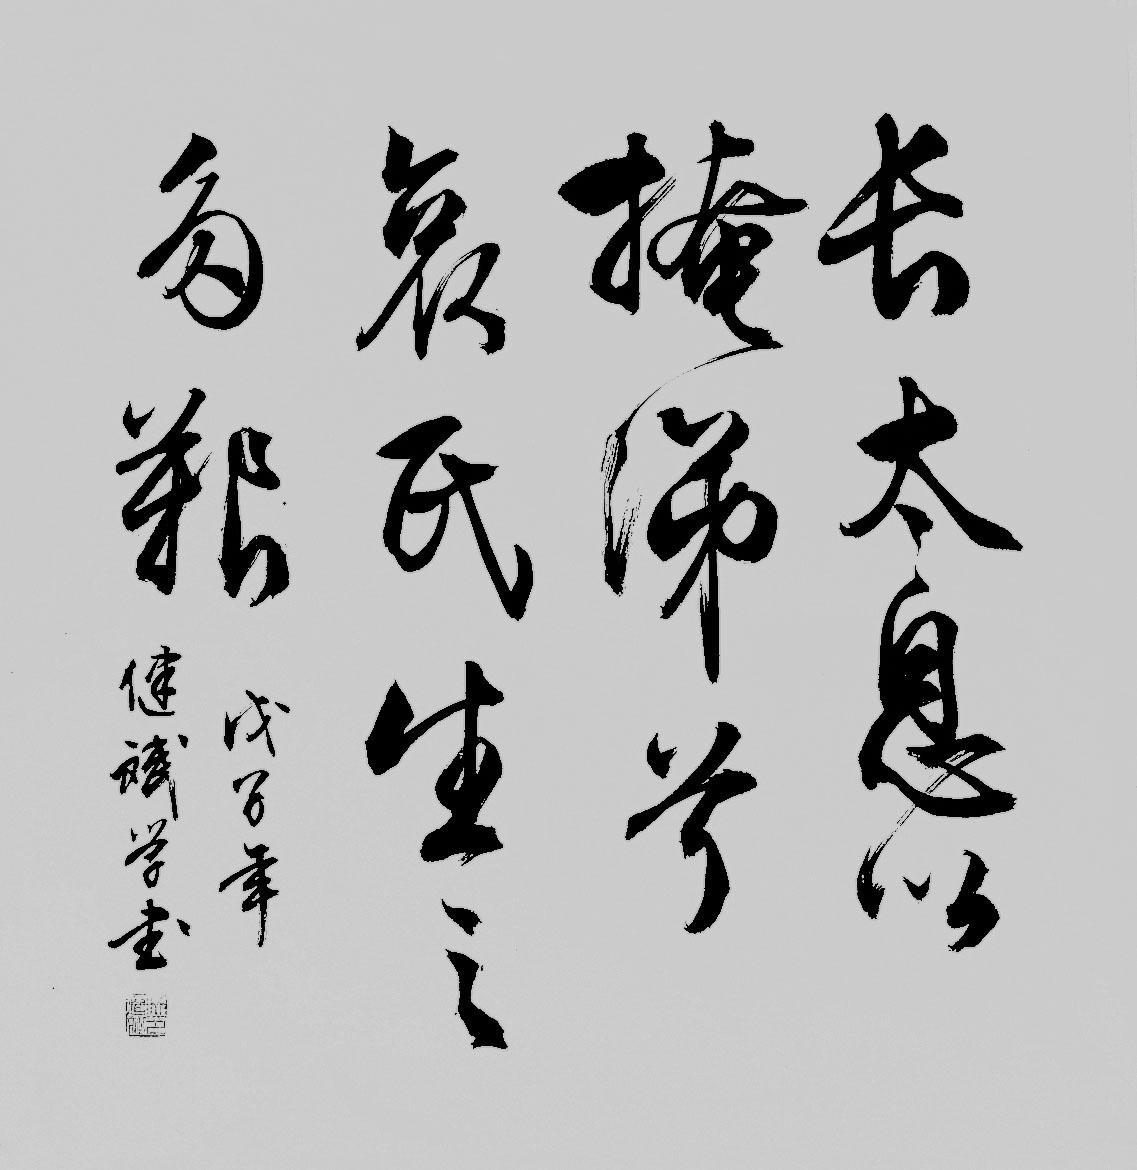 长太息以
掩涕兮
哀民生之
多艰
戊子年
健诚学书